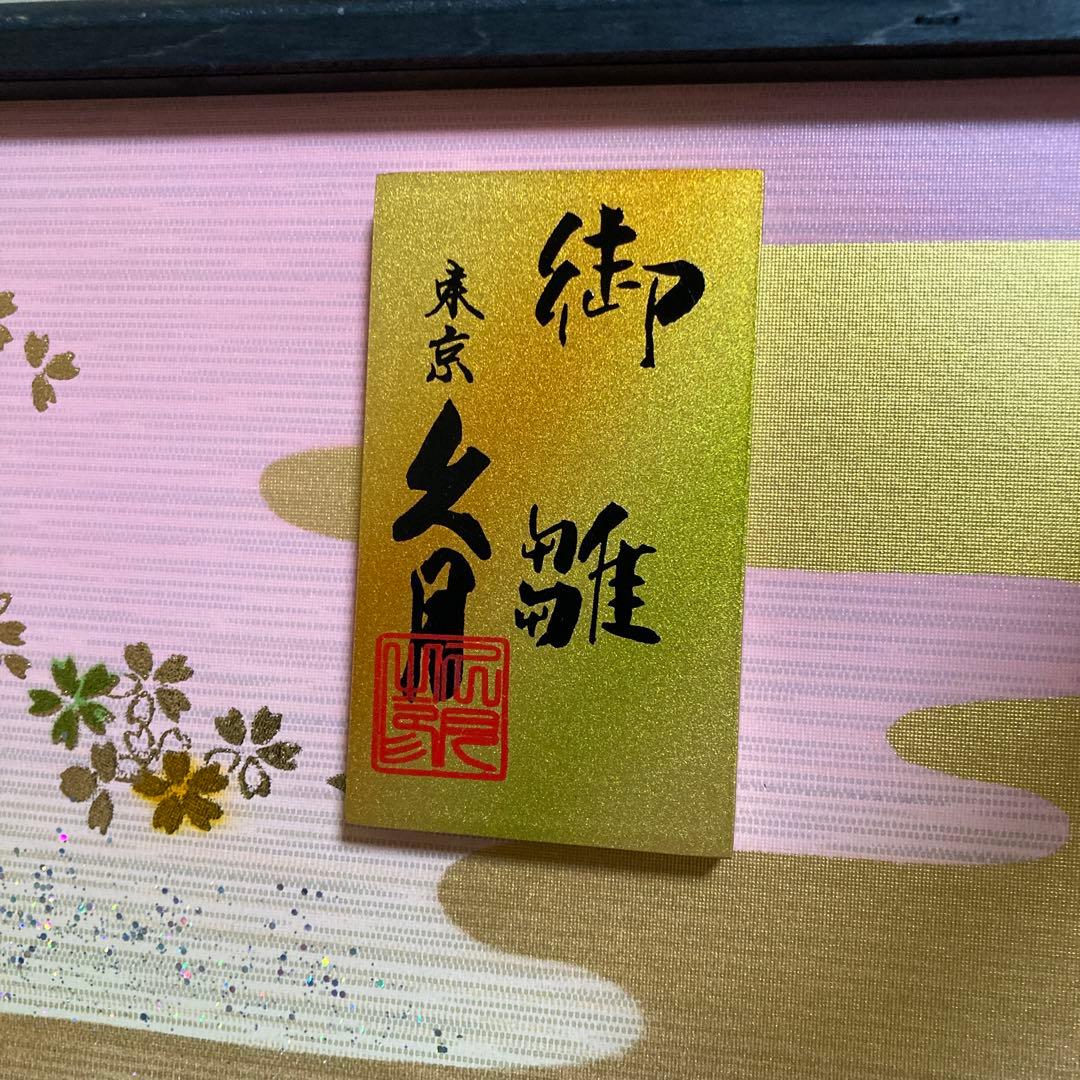 御雛
東京久月